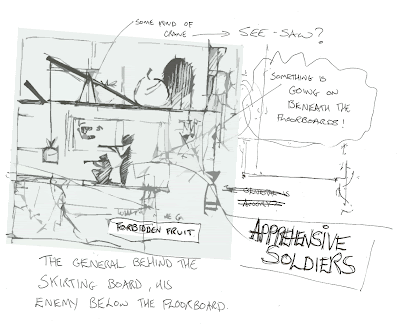 SOME KIND OF
CRANE
SEE-SAW?
SOMETHING IS
GOING ON
BENEATH THE
FLOORBOARDS!
GENERAL IS
E.G.
FORBIDDEN FRUIT
APPREHENSIVE
SOLDIERS
THE GENERAL BEHIND THE
SKIRTING BOARD, HIS
ENEMY BELOW THE FLOORBOARD.